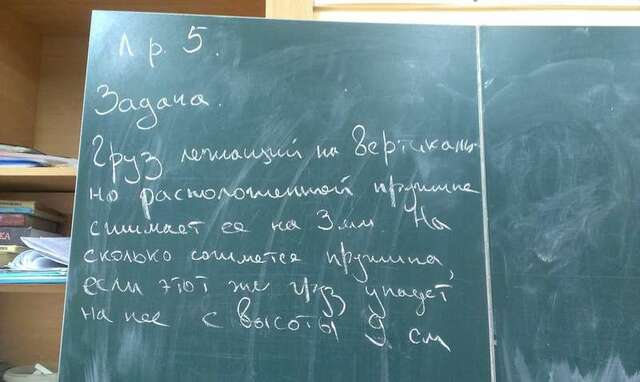 Л р. 5.
Задача.
Груз лежащий на вертикаль-
но расположенной пружине
сжимает её на 3 мм На
сколько сожмется пружина,
если этот же груз упадет
на нее с высоты 9 см